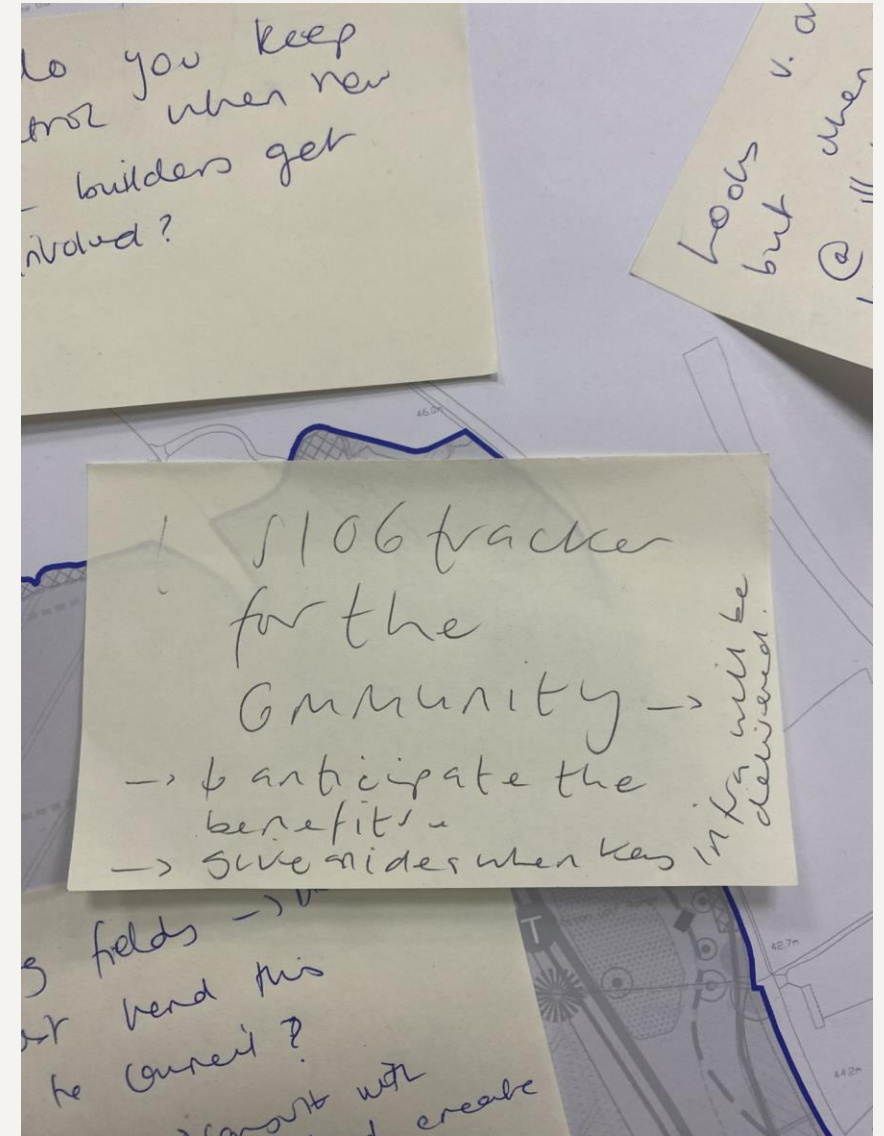 do you keep
when new
builders get
involved?
Looks v.
but when
@ ill
46.0m
! S106 tracker
for the
Community →
→ to anticipate the
benefits..
→ give when key
infra will be
delivered.
fields →
this
Council?
with
create
T
42.7m
44.2m